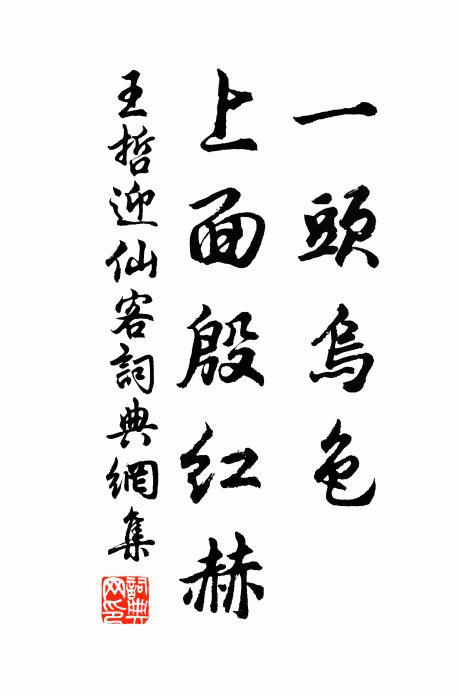 一頭烏色
上面殷紅赫
王哲迎仙客詞典網集
詞典網印